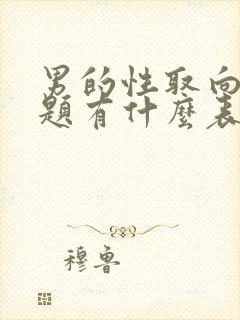 男的性取向
題有什麼表
穆魯